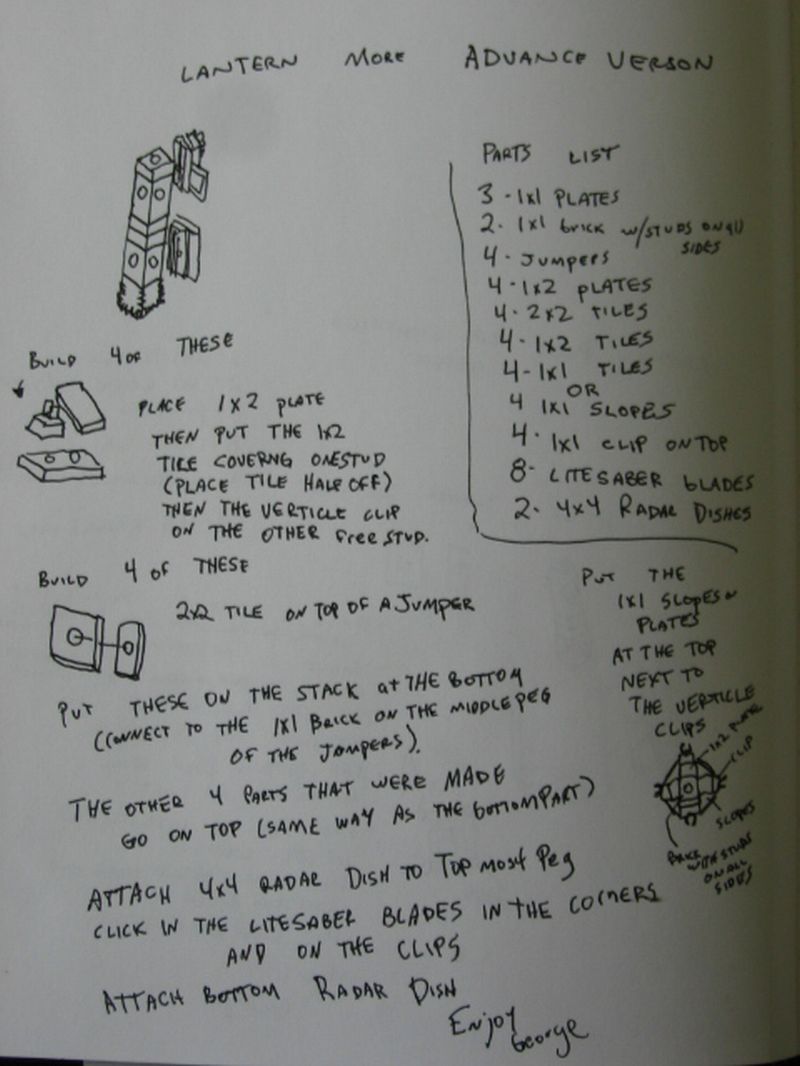 LANTERN MORE ADVANCE VERSON
PARTS LIST
3 - 1x1 PLATES
2 - 1x1 brick w/STUDS ON all SIDES
4 - JUMPERS
4 - 1x2 PLATES
4 - 2x2 TILES
4 - 1x2 TILES
4 - 1x1 TILES
OR
4 1x1 SLOPES
4 - 1x1 CLIP ON TOP
8 - LITESABER bLADES
2 - 4x4 RADAR DISHES
BUILD 4 OF THESE
PLACE 1x2 PLATE
THEN PUT THE 1x2
TILE COVERNG ONE STUD
(PLACE TILE HALF OFF)
THEN THE VERTICLE CLIP
ON THE OTHER Free STUD.
BUILD 4 OF THESE
2x2 TILE ON TOP OF A JUMPER
PUT THESE ON THE STACK at THE BOTTOM
(CONNECT TO THE 1x1 BRICK ON THE MIDDLE PEG
OF THE JUMPERS).
THE OTHER 4 PARTS THAT WERE MADE
GO ON TOP (SAME WAY AS THE BOTTOM PART)
PUT THE
1x1 SLOPES or
PLATES
AT THE TOP
NEXT TO
THE VERTICLE
CLIPS
1x2 PLATE
CLIP
SLOPES
BRICK
WITH STUDS
ON ALL
SIDES
ATTACH 4x4 RADAR DISH TO TOP MOST PEG
CLICK IN THE LITESABER BLADES IN THE CORNERS
AND ON THE CLIPS
ATTACH BOTTOM RADAR DISH
Enjoy
George